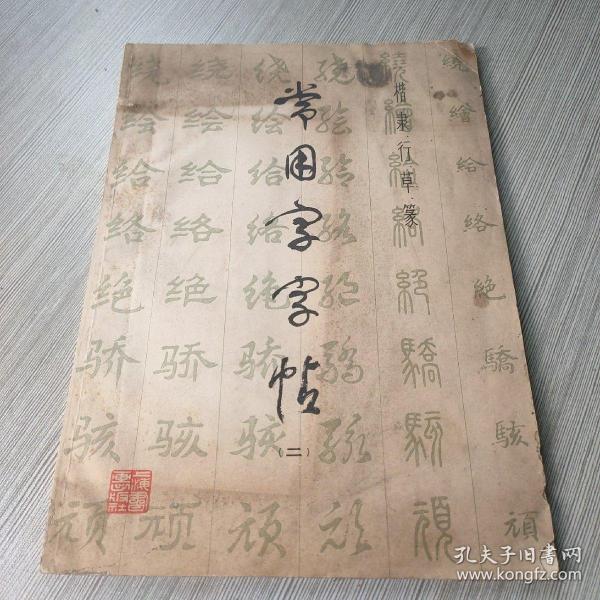 楷·隶·行·草·篆
常用字字帖
(二)
上海書畫出版社
繞繪給絡絶驕駭頑
繞繪給絡絶驕駭頑
绕绘给络绝骄骇顽
绕绘给络绝骄骇顽
绕绘给络绝骄骇顽
绕绘给络绝骄骇顽
孔夫子旧书网
www.kongfz.com